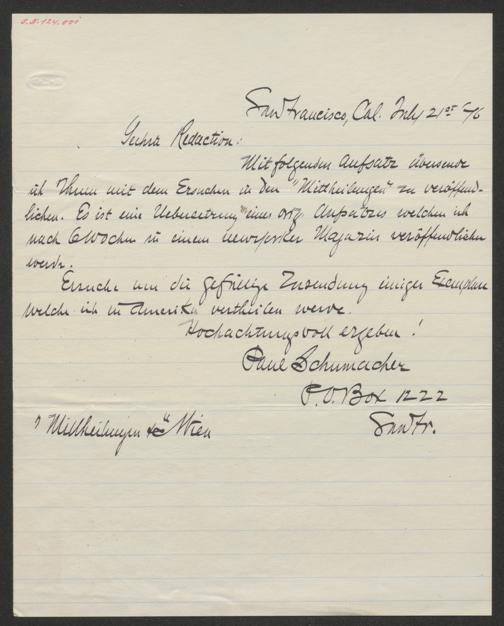 San Francisco, Cal. July 21st
Geehrte Redaction:
Mitfolgenden Aufsatz übersende
ich Ihnen mit dem Ersuchen in den "Mittheilungen" zu veröffent-
lichen. Es ist eine Uebersetzung eines orig. Aufsatzes welchen ich
nach 6 Wochen in einem newyorker Magazin veröffentlichen
werde.
Ersuche um die gefällige Zusendung einiger Exemplare
welche ich in Amerika vertheilen werde.
Hochachtungsvoll ergeben!
Paul Schumacher
P.O. Box 1222
San Fr.
"Mittheilungen" Wien